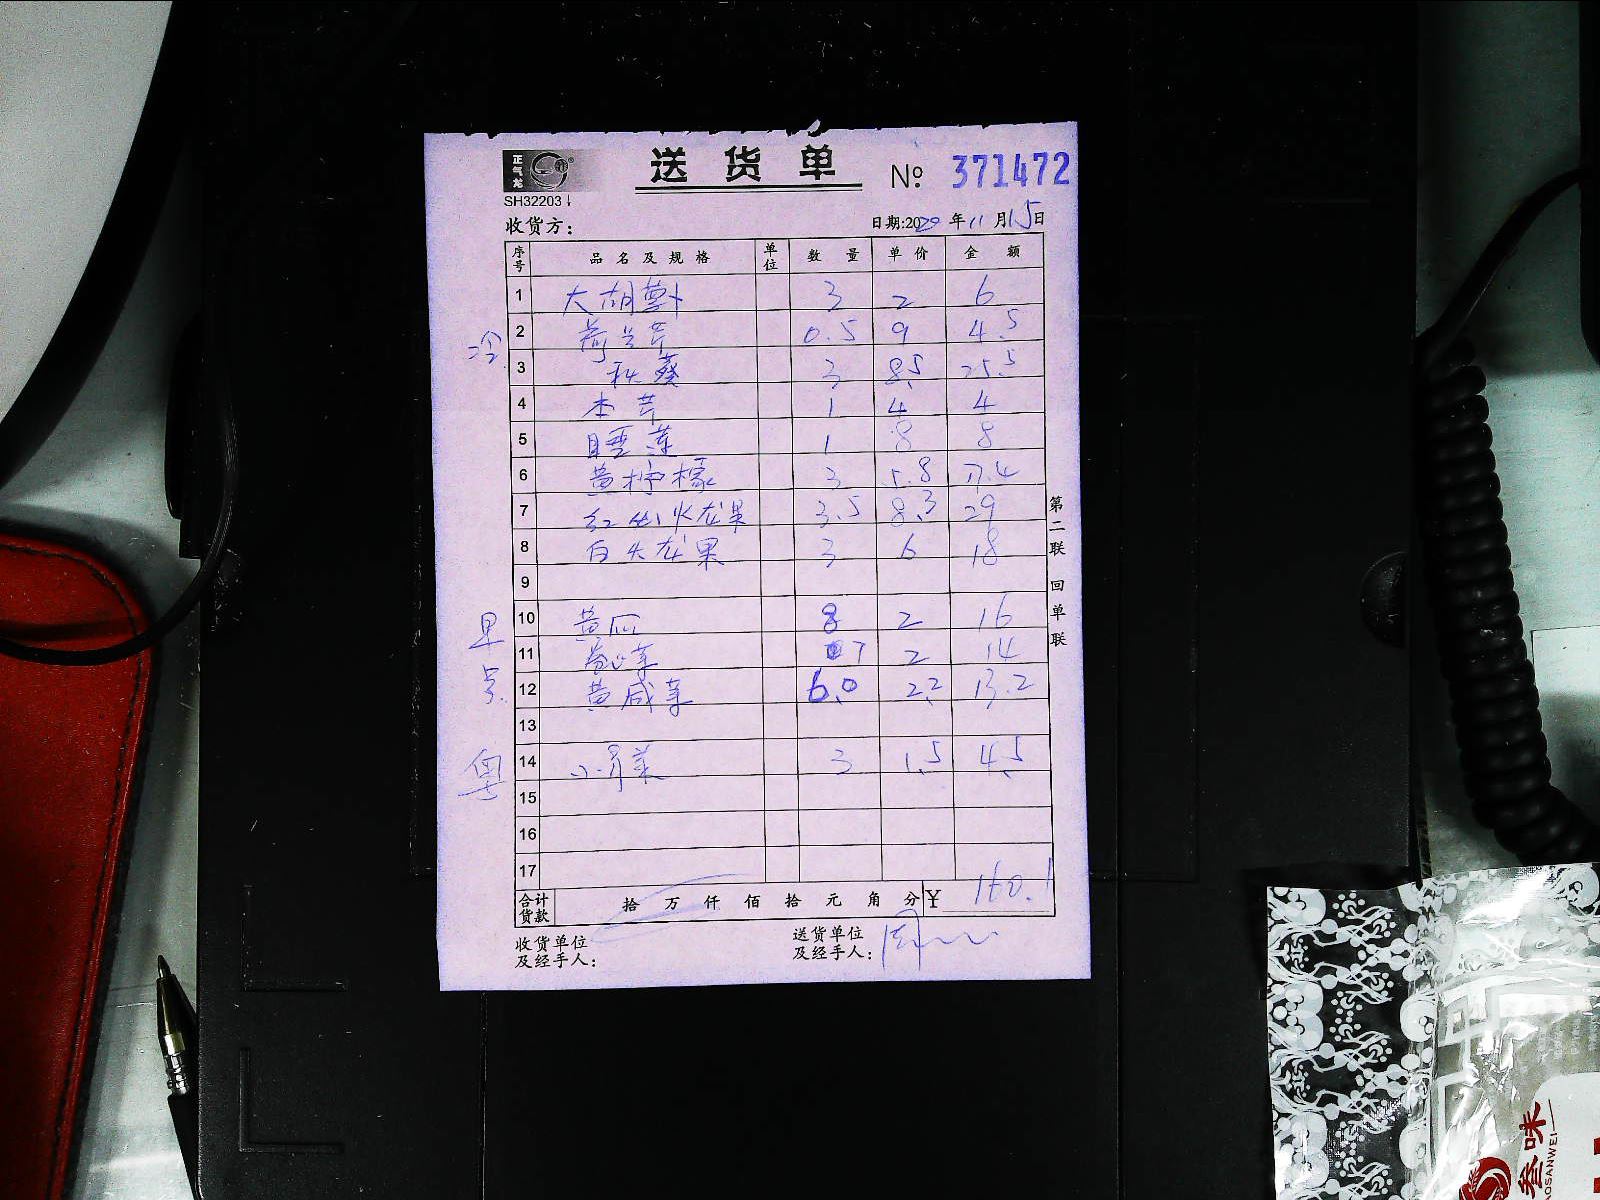 正气龙
送货单 № 371472
SH32203
收货方: 日期:2020年11月15日
序号 品名及规格 单位 数量 单价 金额
1 大胡萝卜 3 2 6
冷
2 荷兰芹 0.5 9 4.5
3 秋葵 3 8.5 25.5
4 本芹 1 4 4
5 睡莲 1 8 8
6 黄柠檬 3 5.8 17.4
7 红心火龙果 3.5 8.3 29
8 白火龙果 3 6 18
9
早点
10 黄瓜 8 2 16
11 卷心菜 7 2 14
12 黄咸菜 6.0 2.2 13.2
13
粤
14 小青菜 3 1.5 4.5
15
16
17
合计货款 拾万仟佰拾元角分 ¥ 160.1
收货单位及经手人: 送货单位及经手人: 周
第二联 回单联
叁味
OSANWEI